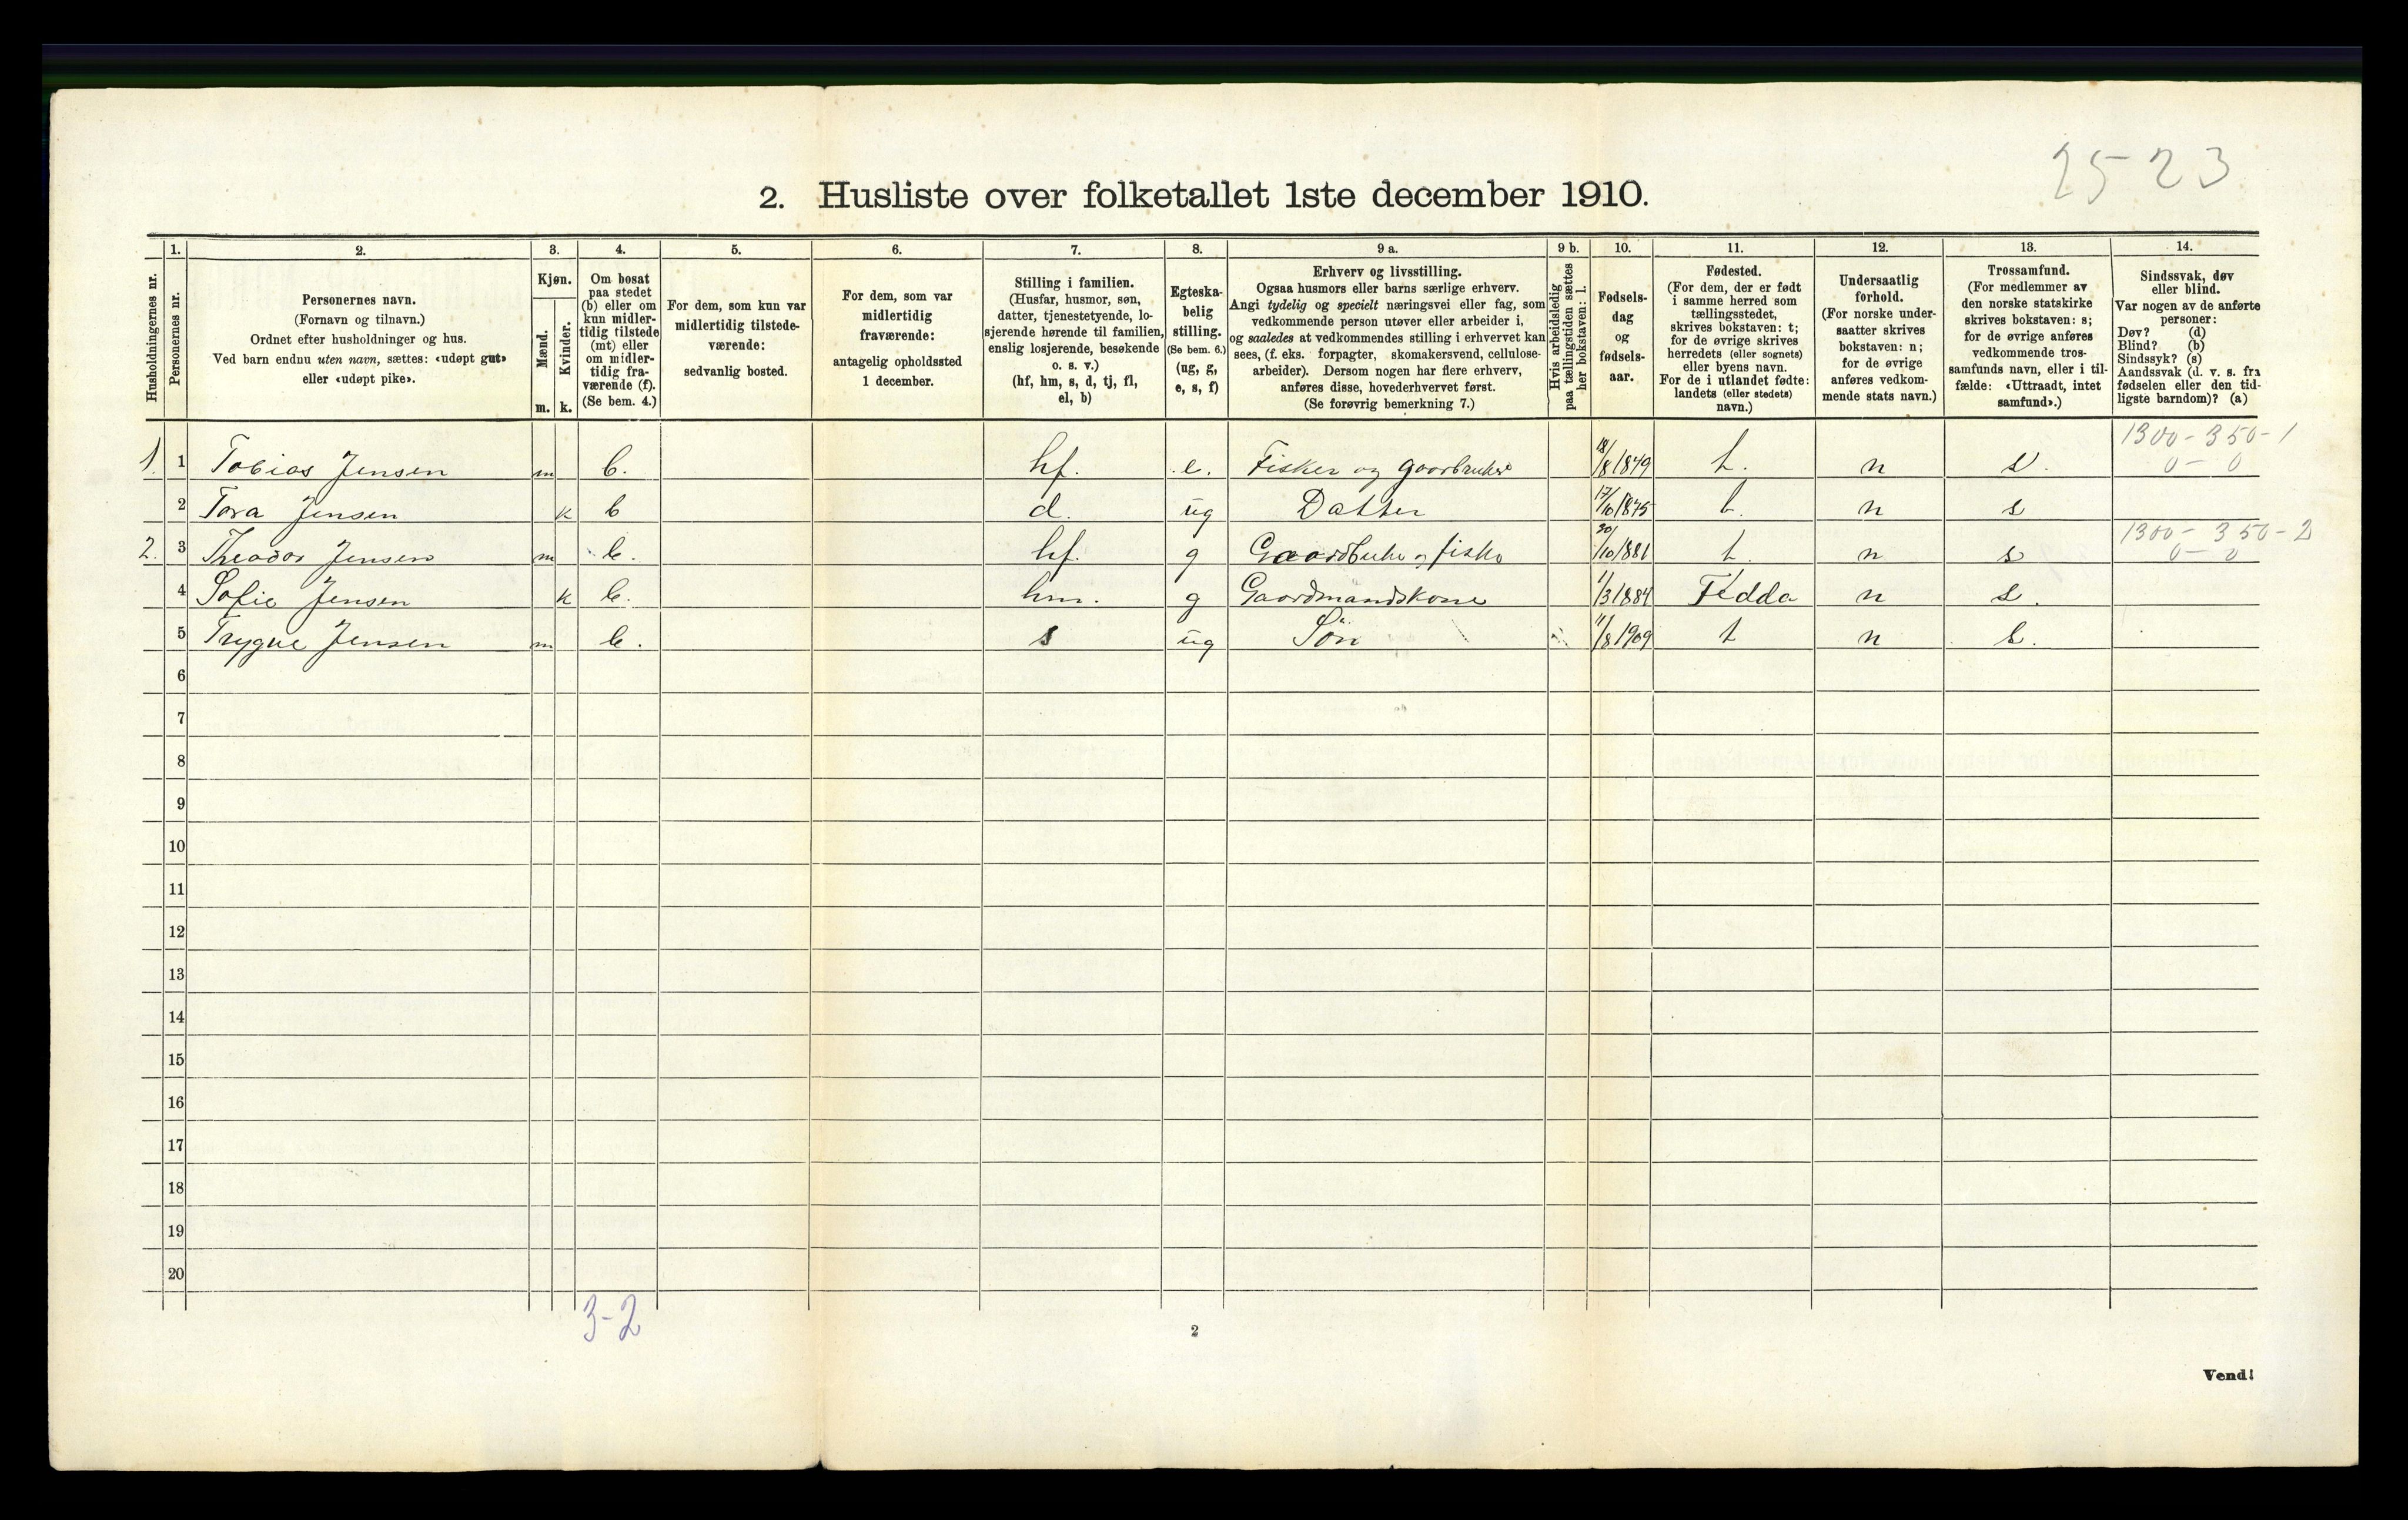 25-23
2. Husliste over folketallet 1ste december 1910.
Husholdningernes nr.
1.
Personernes nr.
2.
Personernes navn.
(Fornavn og tilnavn.)
Ordnet efter husholdninger og hus.
Ved barn endnu uten navn, sættes: «udøpt gut»
eller «udøpt pike».
3.
Kjøn.
Mænd.
Kvinder.
m. k.
4.
Om bosat
paa stedet
(b) eller om
kun midler-
tidig tilstede
(mt) eller
om midler-
tidig fra-
værende (f).
(Se bem. 4.)
5.
For dem, som kun var
midlertidig tilstede-
værende:
sedvanlig bosted.
6.
For dem, som var
midlertidig
fraværende:
antagelig opholdssted
1 december.
7.
Stilling i familien.
(Husfar, husmor, søn,
datter, tjenestetyende, lo-
sjerende hørende til familien,
enslig losjerende, besøkende
o. s. v.)
(hf, hm, s, d, tj, fl,
el, b)
8.
Egteska-
belig
stilling.
(Se bem. 6.)
(ug, g,
e, s, f)
9 a.
Erhverv og livsstilling.
Ogsaa husmors eller barns særlige erhverv.
Angi tydelig og specielt næringsvei eller fag, som
vedkommende person utøver eller arbeider i,
og saaledes at vedkommendes stilling i erhvervet kan
sees, (f. eks. forpagter, skomakersvend, cellulose-
arbeider). Dersom nogen har flere erhverv,
anføres disse, hovederhvervet først.
(Se forøvrig bemerkning 7.)
9 b.
Hvis arbeidsledig
paa tællingstiden sættes
her bokstaven: l.
10.
Fødsels-
dag
og
fødsels-
aar.
11.
Fødested.
(For dem, der er født
i samme herred som
tællingsstedet,
skrives bokstaven: t;
for de øvrige skrives
herredets (eller sognets)
eller byens navn.
For de i utlandet fødte:
landets (eller stedets)
navn.)
12.
Undersaatlig
forhold.
(For norske under-
saatter skrives
bokstaven: n;
for de øvrige
anføres vedkom-
mende stats navn.)
13.
Trossamfund.
(For medlemmer av
den norske statskirke
skrives bokstaven: s;
for de øvrige anføres
vedkommende tros-
samfunds navn, eller i til-
fælde: «Uttraadt, intet
samfund».)
14.
Sindssvak, døv
eller blind.
Var nogen av de anførte
personer:
Døv? (d)
Blind? (b)
Sindssyk? (s)
Aandssvak (d. v. s. fra
fødselen eller den tid-
ligste barndom)? (a)
1300-350-1
0-0
1. 1 Tobias Jensen m b. hf. e. Fisker og gaardbruker 18/8 1849 t. n s.
2 Tora Jensen k b d. ug Datter 17/10 1875 t. n s
1300-350-2
0-0
2. 3 Theodor Jensen m b. hf. g 30/10 1881 t n s
4 Sofie Jensen k b. hm. g Gaardmandskone 1/3 1884 Fedda n s.
5 Trygve Jensen m b. s ug Sön 11/8 1909 t n s.
6
7
8
9
10
11
12
13
14
15
16
17
18
19
20
3-2
2
Vend!